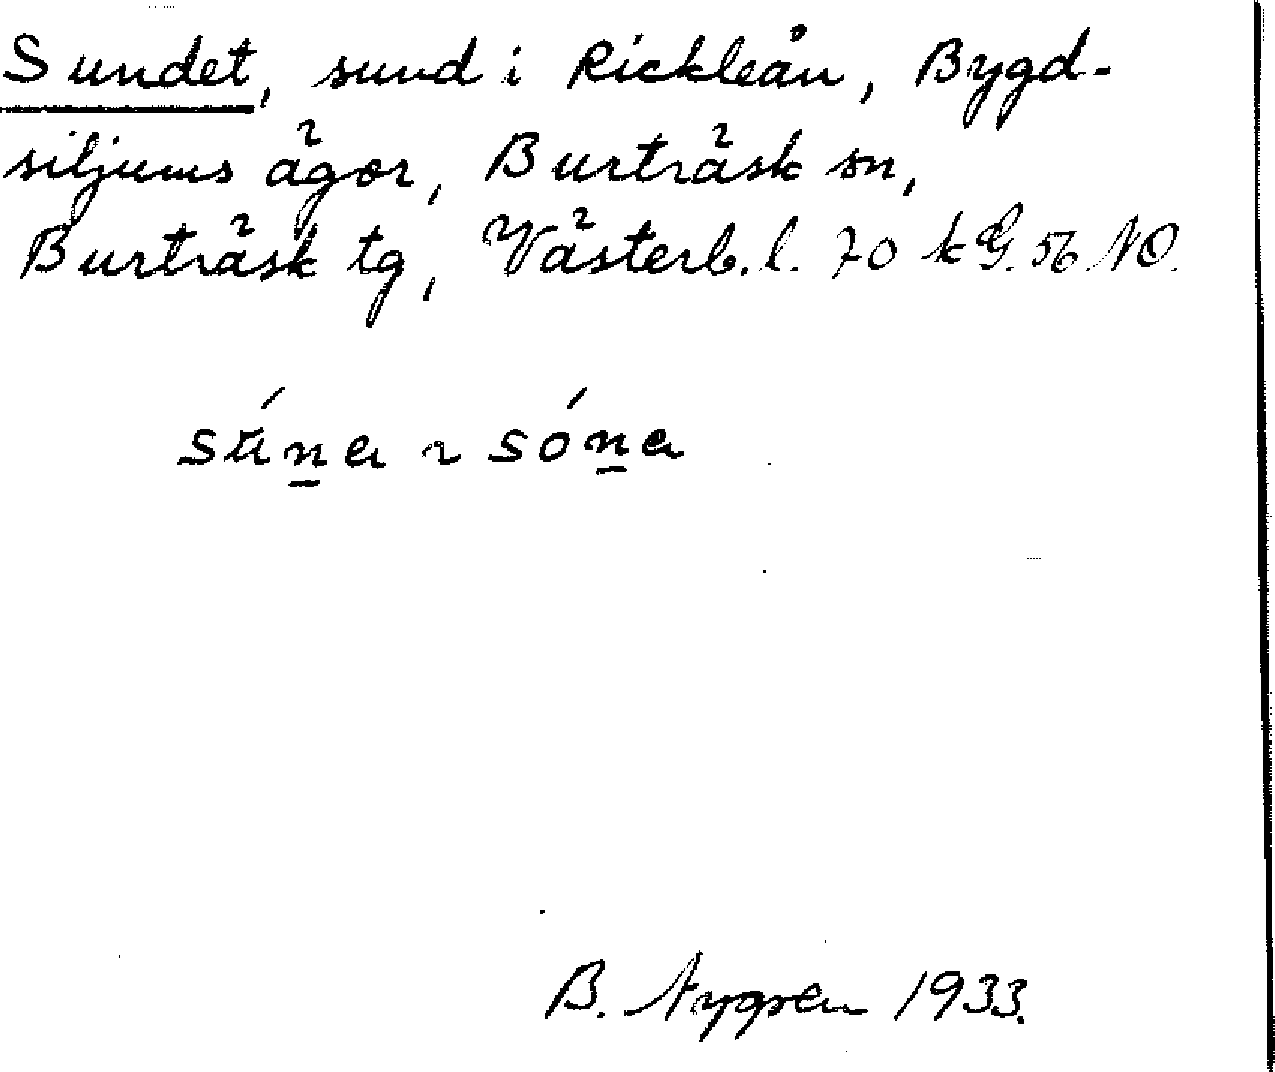 Sundet, sund i Rickleån, Bygd-
siljums ägor, Burträsk sn,
Burträsk tg, Västerb. l. 70 k G. 56 NO.
súṉa ~ sóṉa
B. Nygren 1933.